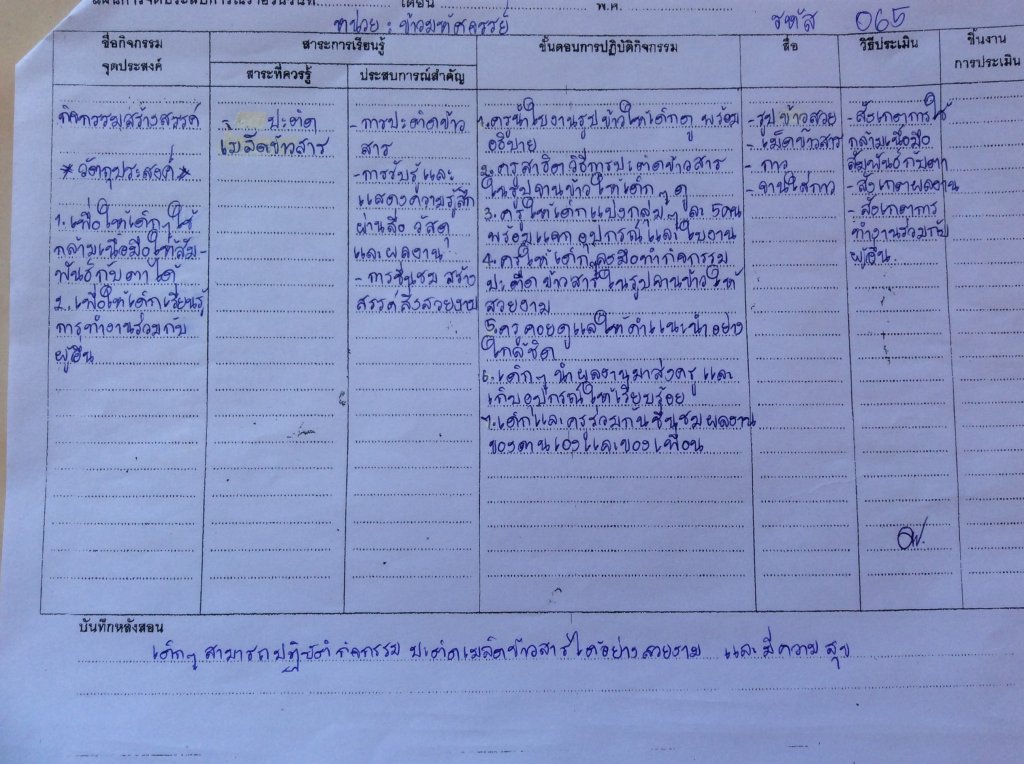 แผนการจัดประสบการณ์รายวันวันที่ เดือน พ.ศ.
หน่วย : ข้าวมหัศจรรย์ รหัส 065
ชื่อกิจกรรม
จุดประสงค์
สาระการเรียนรู้
สาระที่ควรรู้
ประสบการณ์สำคัญ
ขั้นตอนการปฏิบัติกิจกรรม
สื่อ
วิธีประเมิน
ชิ้นงาน
การประเมิน
กิจกรรมสร้างสรรค์
*วัตถุประสงค์*
1. เพื่อให้เด็กๆใช้
กล้ามเนื้อมือให้สัม-
พันธ์กับตาได้
2. เพื่อให้เด็กเรียนรู้
การทำงานร่วมกับ
ผู้อื่น
- ปะติด
เมล็ดข้าวสาร
- การปะติดข้าว
สาร
- การรับรู้และ
แสดงความรู้สึก
ผ่านสื่อ วัสดุ
และผลงาน
- การชื่นชม สร้าง
สรรค์สิ่งสวยงาม
1. ครูนำใบงานรูปข้าวให้เด็กดู พร้อม
อธิบาย
2. ครูสาธิตวิธีการปะติดข้าวสาร
ในรูปจานข้าวให้เด็กๆดู
3. ครูให้เด็กแบ่งกลุ่มๆละ 5คน
พร้อมแจกอุปกรณ์และใบงาน
4. ครูให้เด็กๆลงมือทำกิจกรรม
ปะติดข้าวสารในรูปจานข้าวให้
สวยงาม
5. ครูคอยดูแลให้คำแนะนำอย่าง
ใกล้ชิด
6. เด็กๆ นำผลงานมาส่งครูและ
เก็บอุปกรณ์ให้เรียบร้อย
7. เด็กและครูร่วมกันชื่นชมผลงาน
ของตนเองและของเพื่อน
- รูปข้าวสวย
- เม็ดข้าวสาร
- กาว
- จานใส่กาว
- สังเกตการใช้
กล้ามเนื้อมือ
สัมพันธ์กับตา
- สังเกตผลงาน
- สังเกตการ
ทำงานร่วมกับ
ผู้อื่น.
บันทึกหลังสอน
เด็กๆ สามารถปฏิบัติกิจกรรม ปะติดเมล็ดข้าวสารได้อย่างสวยงาม และมีความสุข